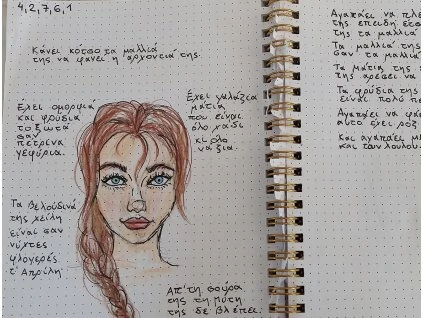 4,2,7,6,1
Κάνει κότσο τα μαλλιά
της να φανεί η αρχοντιά της.
Έχει ομορφιά
και φρύδια
τοξωτά
σαν
πέτρινα
γεφύρια.
Έχει γαλάζια
μάτια
που είναι
όλο χάδι
κι όλο
νάζια.
Τα βελούδινά
της χείλη
είναι σαν
νύχτες
φλογερές
τ' Απρίλη
Απ' τη σούρα
της τη μύτη
της δε βλέπει.
Αγαπάει να πλέ
της επειδή έτσ
της τα μαλλιά
Τα μαλλιά της
σαν τα μαλλιά
Τα μάτια της
της αρέσει να
Τα φρύδια της
είναι πολύ π
Αγαπάει να φο
αυτό έχει ροζ
Και αγαπάει μ
και των λουλου